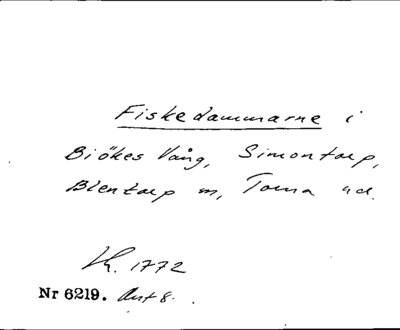 Fiskedammarne i
Biökes Vång, Simontorp,
Blentarp m, Torna hd.
Kh. 1772
Nr 6219. Aut 8.